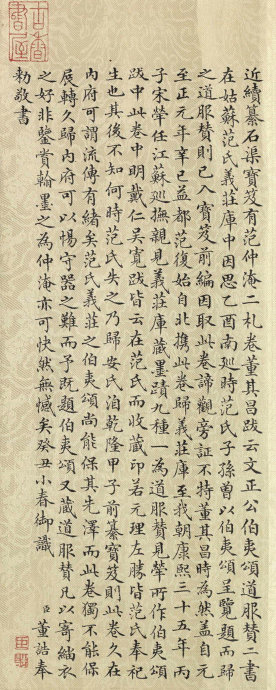 近續纂石渠寶笈有范仲淹二札卷董其昌跋云文正公伯夷頌道服贊二書
在姑蘇范氏義莊庫中因思乙酉南廵時范氏子孫曾以伯夷頌呈覽題而歸
之道服贊則已入寶笈前編因取此卷諦觀旁証不特董其昌時為然蓋自元
至正元年辛巳益都范復始自北携此卷歸義莊庫至我朝康熙三十五年丙
子宋犖任江蘇廵撫親見義莊庫藏墨蹟九種一為道服贊見犖所作伯夷頌
跋中此卷中明戴仁吳寬跋皆云在范氏而收藏印若元理左勝皆范氏奉祀
生也其後不知何時范氏失之乃歸安氏洎乾隆甲子前纂寶笈則此卷久在
內府可謂流傳有緒矣范氏義莊之伯夷頌尚能保其先澤而此卷獨不能保
展轉久歸內府可以惕守器之難而予既題伯夷頌又藏道服贊凡以寄緇衣
之好非鑒賞翰墨之為仲淹亦可快然無憾矣癸丑小春御識 臣董誥奉
勅敬書
古香書屋